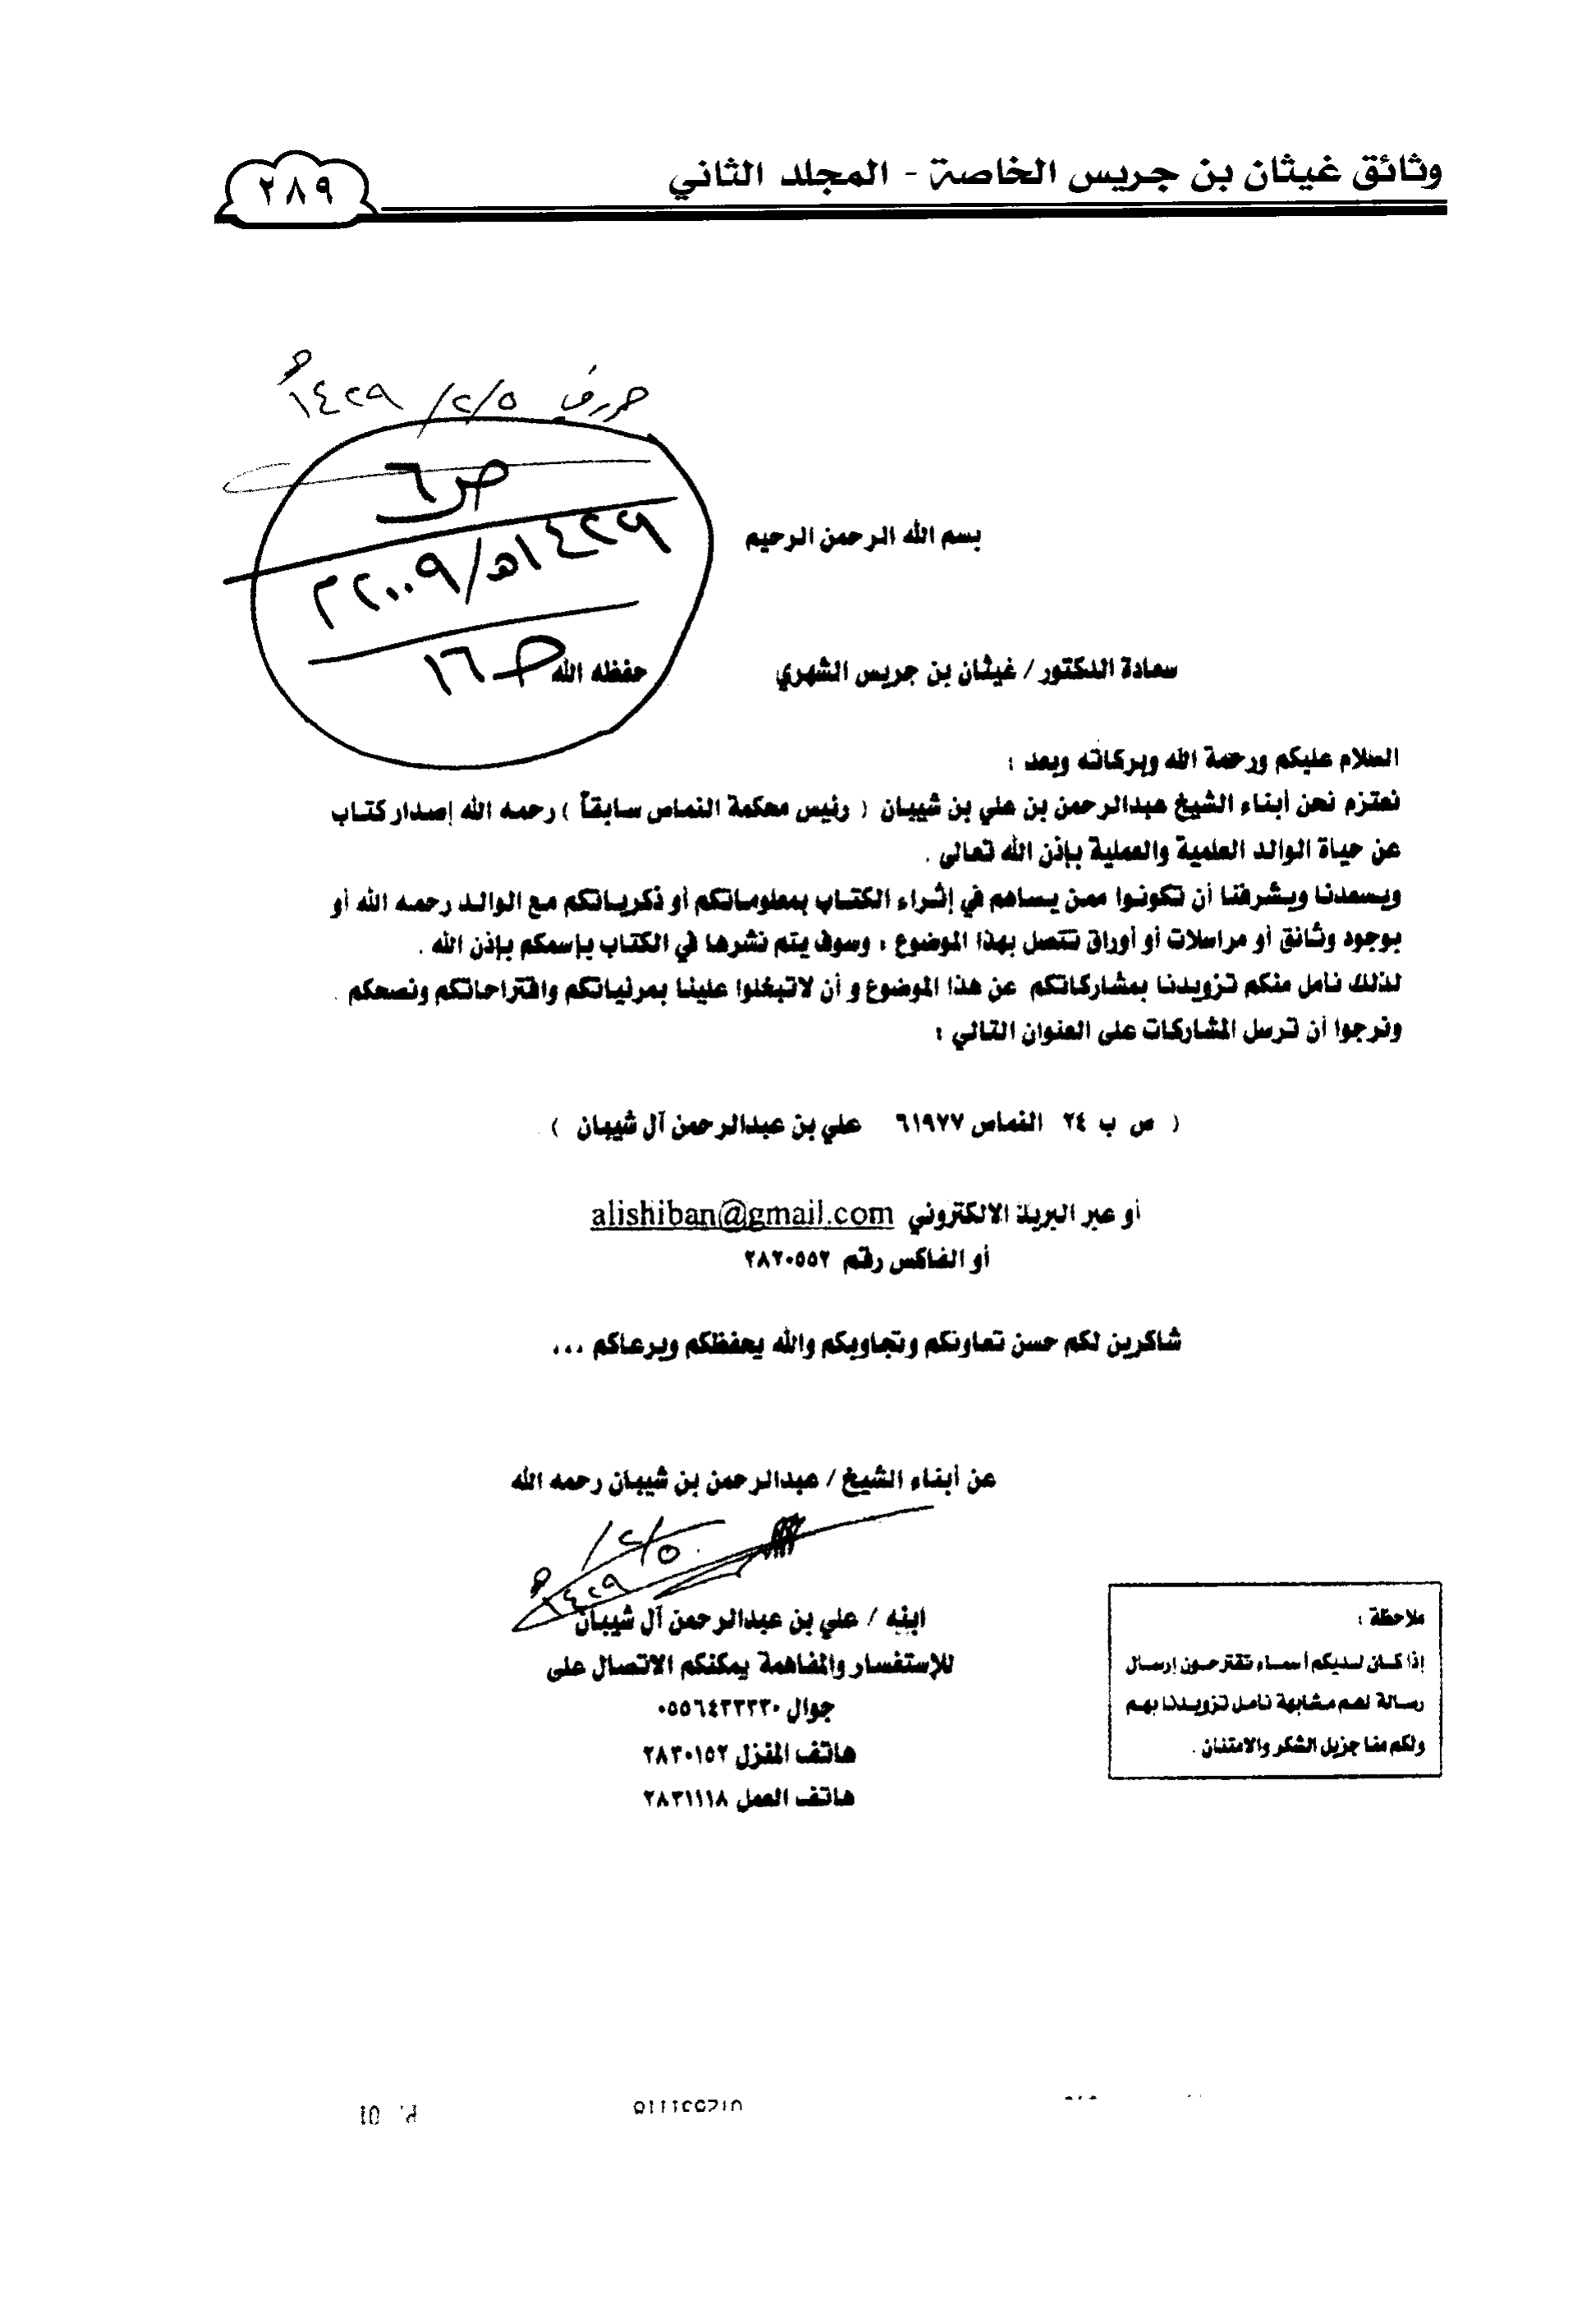 وثائق غيثان بن جريس الخاصة - المجلد الثاني
٢٨٩
حرر في ١٤٢٩/٢/٥هـ
ص٦
١٤٢٩هـ/٢٠٠٩م
ص١٦
بسم الله الرحمن الرحيم
سعادة الدكتور / غيثان بن جريس الشهري حفظه الله
السلام عليكم ورحمة الله وبركاته وبعد :
نعتزم نحن أبناء الشيخ عبدالرحمن بن علي بن شيبان ( رئيس محكمة النماص سابقاً ) رحمه الله إصدار كتاب
عن حياة الوالد العلمية والعملية بإذن الله تعالى .
ويسعدنا ويشرفنا أن تكونوا ممن يساهم في إثراء الكتاب بمعلوماتكم أو ذكرياتكم مع الوالد رحمه الله أو
بوجود وثائق أو مراسلات أو أوراق تتصل بهذا الموضوع ، وسوف يتم نشرها في الكتاب بإسمكم بإذن الله .
لذلك نامل منكم تزويدنا بمشاركاتكم عن هذا الموضوع و أن لاتبخلوا علينا بمرئياتكم واقتراحاتكم ونصحكم .
ونرجوا أن ترسل المشاركات على العنوان التالي :
( ص ب ٢٤ النماص ٦١٩٧٧ علي بن عبدالرحمن آل شيبان )
أو عبر البريد الالكتروني alishiban@gmail.com
أو الفاكس رقم ٢٨٢٠٥٥٢
شاكرين لكم حسن تعاونكم وتجاوبكم والله يحفظكم ويرعاكم ...
عن أبناء الشيخ / عبدالرحمن بن شيبان رحمه الله
١٤٢٩/٢/٥هـ
ابنه / علي بن عبدالرحمن آل شيبان
للإستفسار والمفاهمة يمكنكم الاتصال على
جوال ٠٥٥٦٤٣٣٣٣٠
هاتف المنزل ٢٨٣٠١٥٢
هاتف العمل ٢٨٣١١١٨
ملاحظة :
إذا كان لديكم أسماء تقترحون إرسال
رسالة لهم مشابهة نامل تزويدنا بهم
ولكم منا جزيل الشكر والامتنان .
P. 01